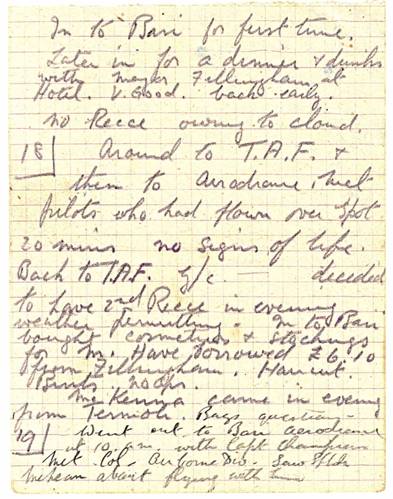 In to Bari for first time.
Later in for a dinner & drinks
with Major Fillingham at
Hotel. V. Good. back early
no Recce owing to cloud.
18 Around to T.A.F. &
then to Aerodrome, met
pilots who had flown over spot
20 mins no signs of life.
Back to T.A.F. G/c. — decided
to have 2nd Recce in evening
weather permitting. In to Bari
bought cosmetics & stockings
for M. Have borrowed £6.10
from Fillingham. Haircut.
McKenna came in evening
from Termoli. Bags question -
19 Went out to Bari Aerodrome
at 10 a.m. with Capt
Met Col. Airborne Div. Saw
about flying with